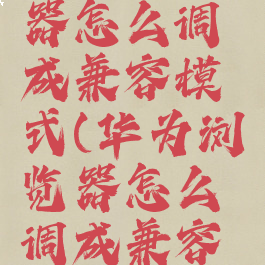 器怎么调
成兼容模
式(华为浏
览器怎么
调成兼容